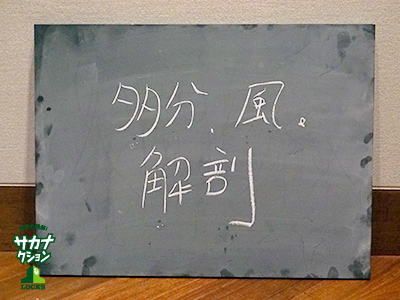 多分、風。
解剖
サカナ
クション
LOCKS